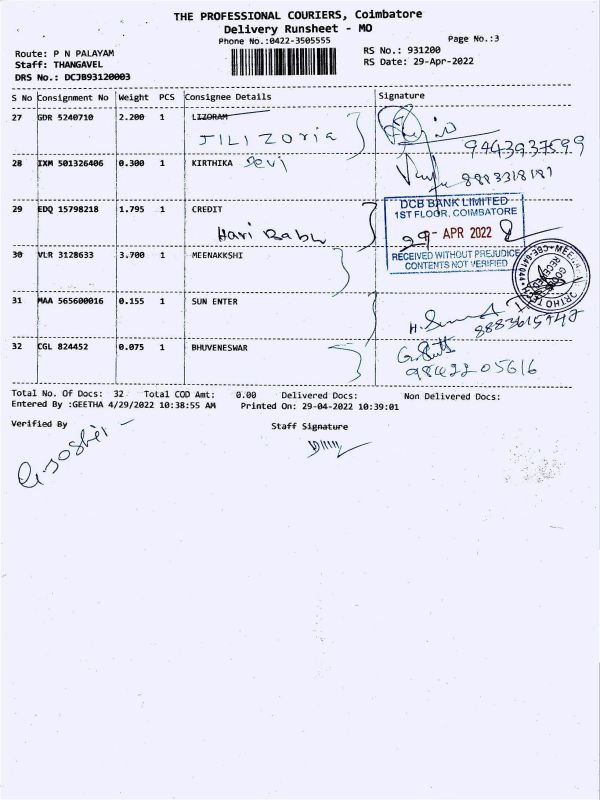 THE PROFESSIONAL COURIERS, Coimbatore
Delivery Runsheet - MO
Phone No.:0422-3505555
Page No.:3
Route: P N PALAYAM
RS No.: 931200
Staff: THANGAVEL
RS Date: 29-Apr-2022
DRS No.: DCJB93120003
S No Consignment No Weight PCS Consignee Details Signature
27 GDR 5240710 2.200 1 LIZORAM
JILI Zoria
9443937599
28 IXM 501326406 0.300 1 KIRTHIKA Devi
8883318191
29 EDQ 15798218 1.795 1 CREDIT
Hari Babu
DCB BANK LIMITED
1ST FLOOR, COIMBATORE
29 - APR 2022
RECEIVED WITHOUT PREJUDICE
CONTENTS NOT VERIFIED
30 VLR 3128633 3.700 1 MEENAKKSHI
31 MAA 565600016 0.155 1 SUN ENTER
32 CGL 824452 0.075 1 BHUVENESWAR
9842205616
Total No. Of Docs: 32 Total COD Amt: 0.00 Delivered Docs: Non Delivered Docs:
Entered By :GEETHA 4/29/2022 10:38:55 AM Printed On: 29-04-2022 10:39:01
Verified By Staff Signature